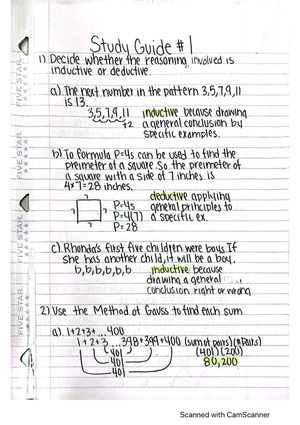 Study Guide #1
1) Decide whether the reasoning involved is
inductive or deductive.
a) The next number in the pattern 3,5,7,9,11
is 13.
3,5,7,9,11 inductive because drawing
+2 a general conclusion by
specific examples.
b) To formula P=4s can be used to find the
preimeter of a square. So, the preimeter of
a square with a side of 7 inches is
4*7=28 inches.
deductive applying
7 7 P=4s general principles to
P=4(7) a specific ex.
P=28
c) Rhonda's first five children were boys. If
she has another child, it will be a boy.
b,b,b,b,b,b inductive because
drawing a general
conclusion right or wrong
2) Use the Method of Gauss to find each sum
a) 1+2+3+...400
1+2+3...398+399+400 (sum of pairs)(#Pairs)
401 (401)(200)
401 80,200
401
FIVE STAR
FIVE STAR
FIVE STAR
FIVE STAR
Scanned with CamScanner